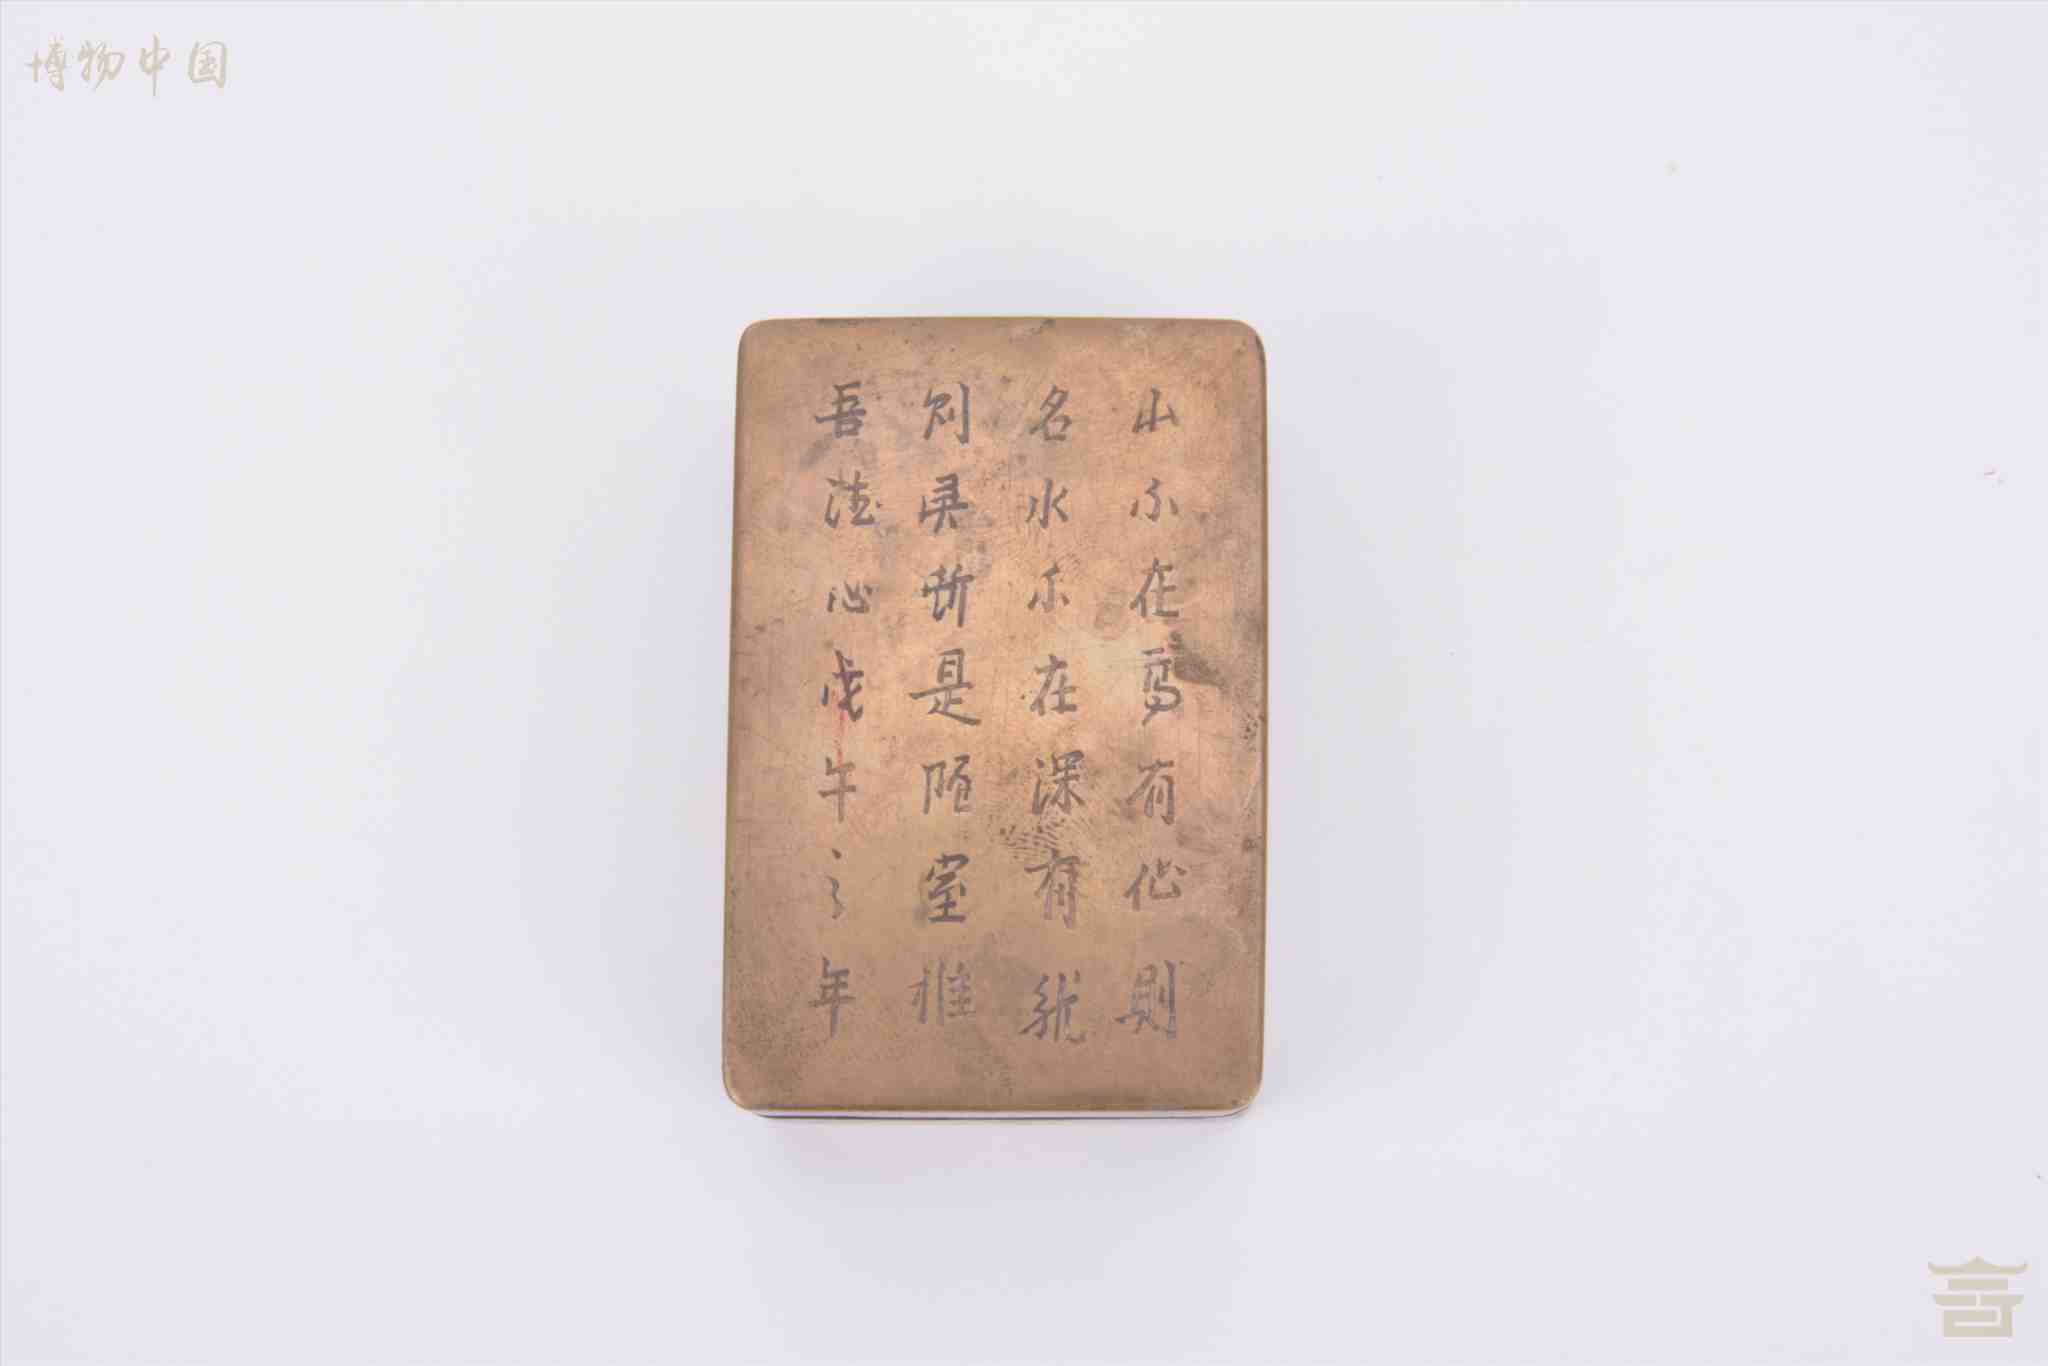 博物中国
山不在高有仙則
名水不在深有龍
则灵斯是陋室惟
吾德心戊午之年